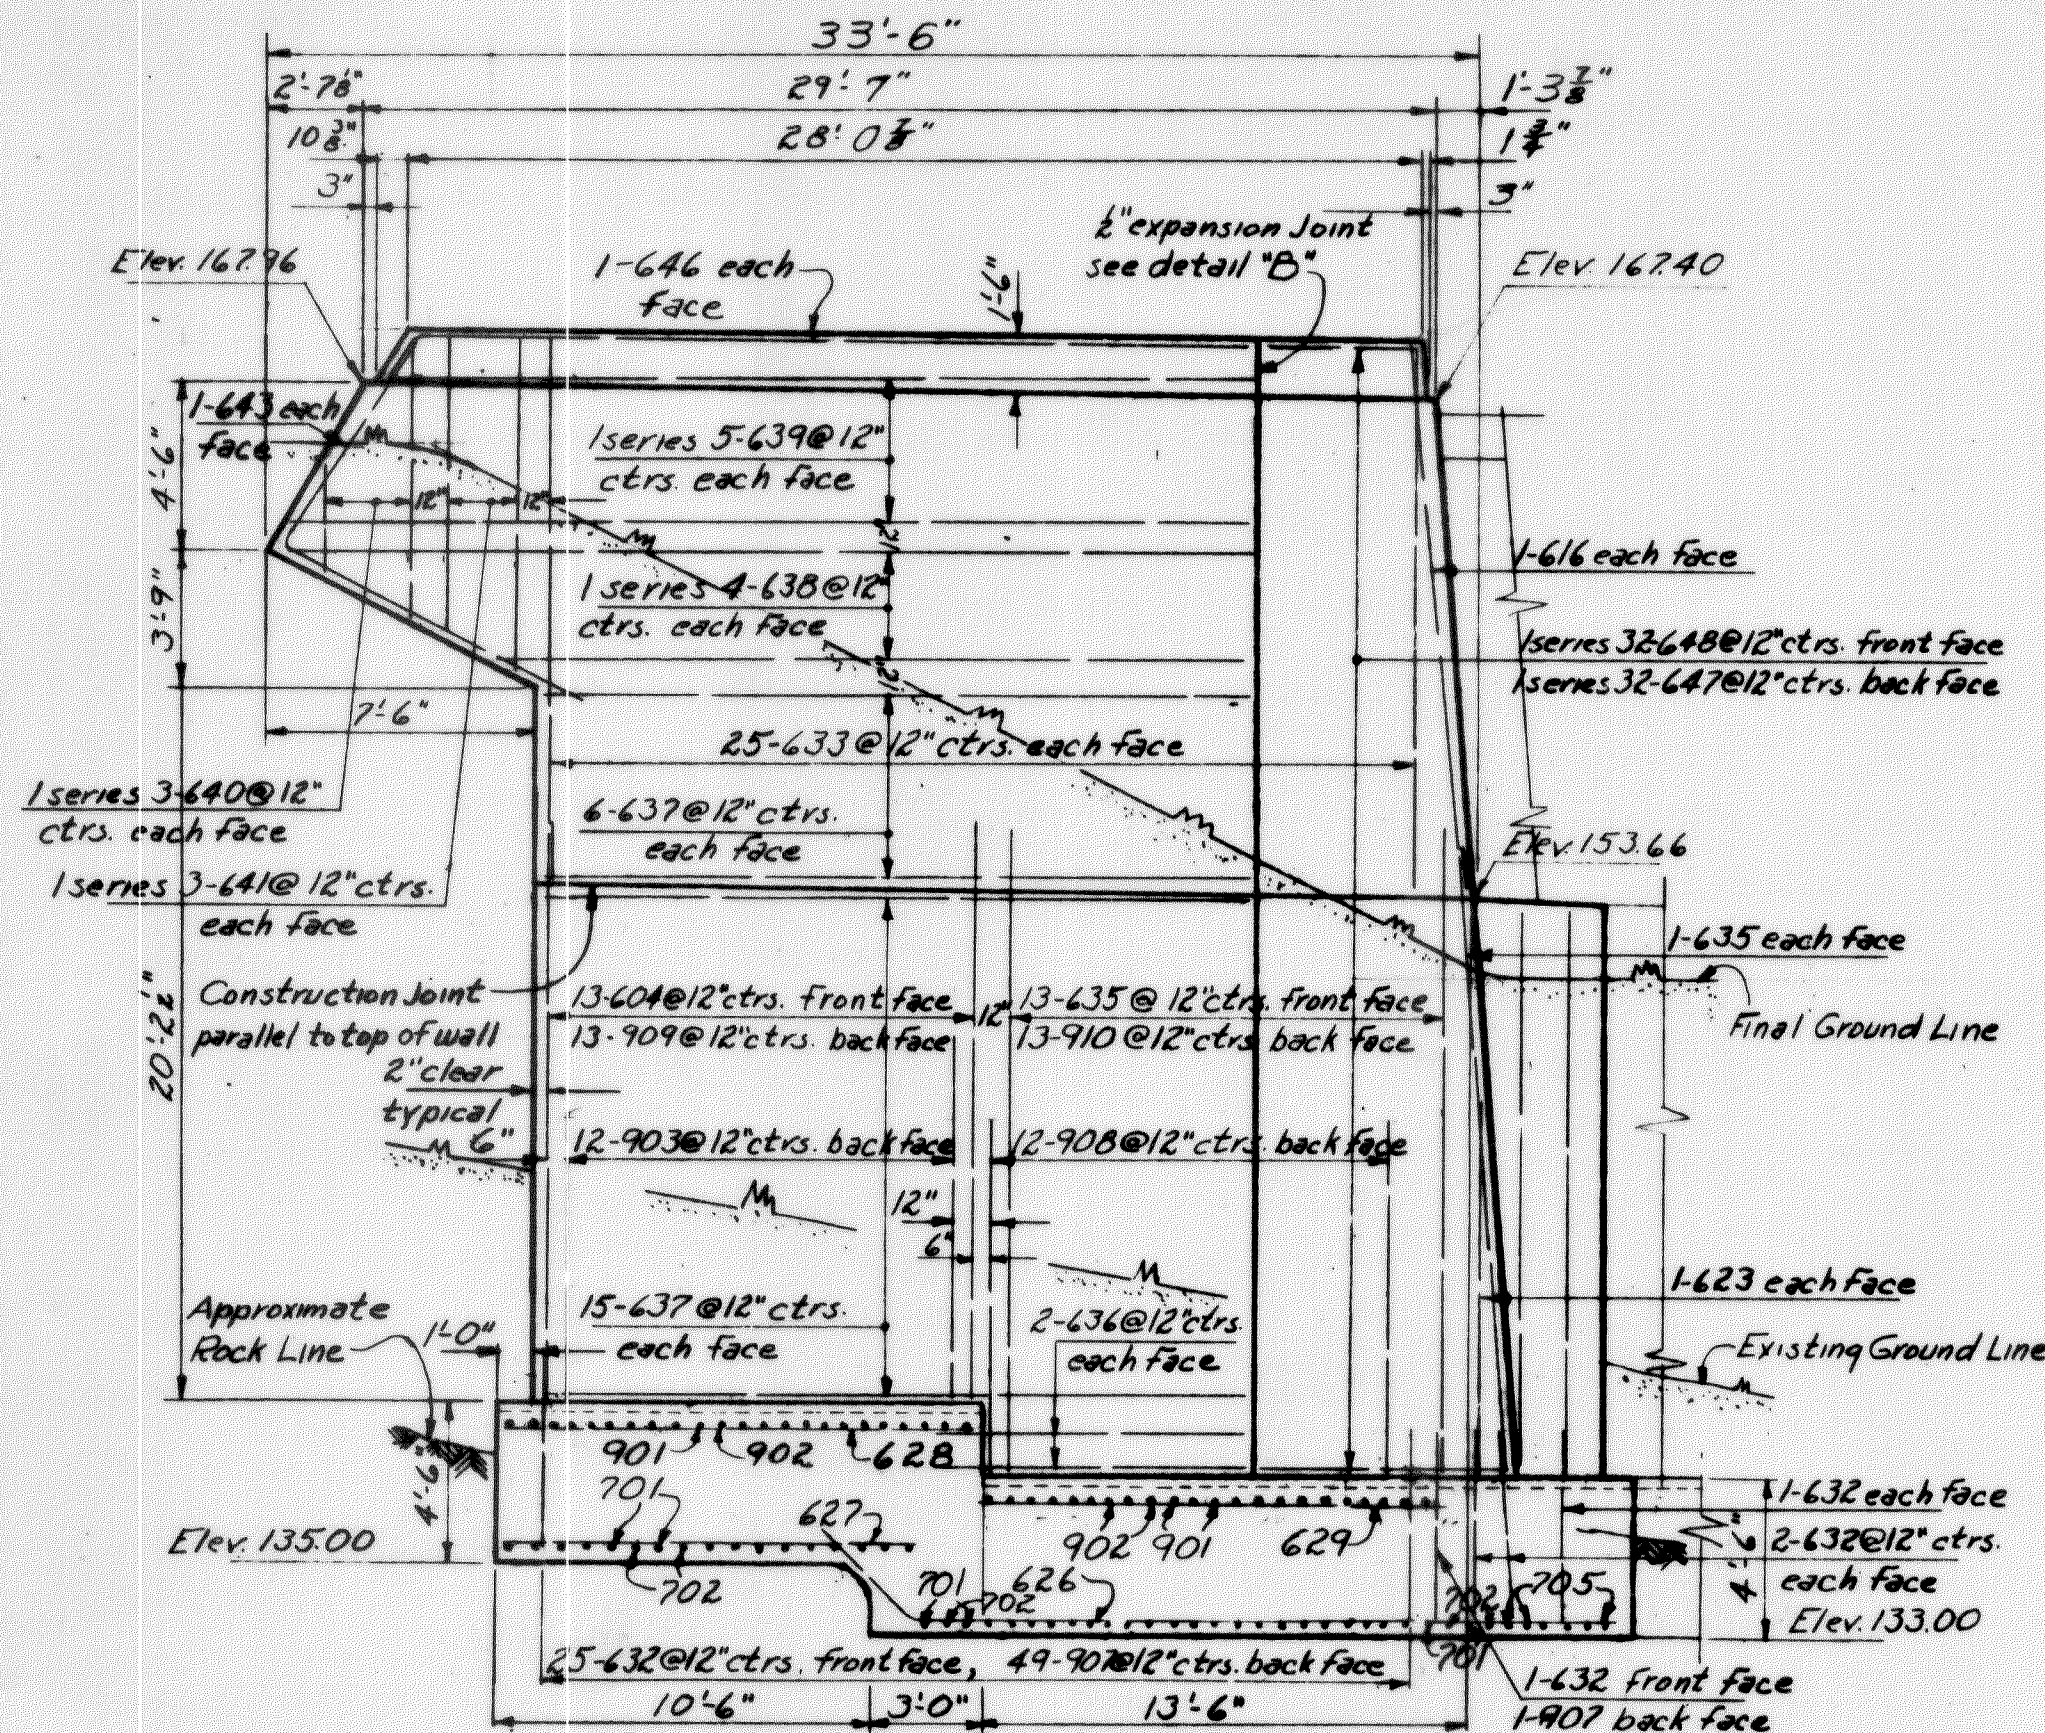 33'-6"
2'-7⅛"
29'-7"
1'-3⅞"
10⅜"
28'-0⅞"
1¾"
3"
3"
½"expansion Joint
see detail "B"
Elev. 167.96
1-646 each
face
1'-6"
Elev. 167.40
1-643 each
face
1 series 5-639@12"
ctrs. each face
4'-6"
12"
12"
12"
1-616 each face
1 series 4-638@12"
ctrs. each face
3'-9"
1 series 32-648@12"ctrs. front face
1 series 32-647@12"ctrs. back face
12"
7'-6"
25-633@12"ctrs. each face
1 series 3-640@12"
ctrs. each face
6-637@12"ctrs.
each face
Elev. 153.66
1 series 3-641@12"ctrs.
each face
1-635 each face
Construction Joint
parallel to top of wall
13-604@12"ctrs. front face
13-909@12"ctrs. back face
12"
13-635@12"ctrs. front face
13-910@12"ctrs. back face
Final Ground Line
20'-2½"
2"clear
typical
6"
12-903@12"ctrs. back face
12-908@12"ctrs. back face
12"
6"
1-623 each face
Approximate
Rock Line
1'-0"
15-637@12"ctrs.
each face
2-636@12"ctrs.
each face
Existing Ground Line
901
902
628
4'-6"
701
627
902
901
629
1-632 each face
2-632@12"ctrs.
each face
4'-6"
Elev. 135.00
702
701
702
626
702
705
Elev. 133.00
701
25-632@12"ctrs. front face, 49-907@12"ctrs. back face
1-632 front face
1-907 back face
10'-6"
3'-0"
13'-6"